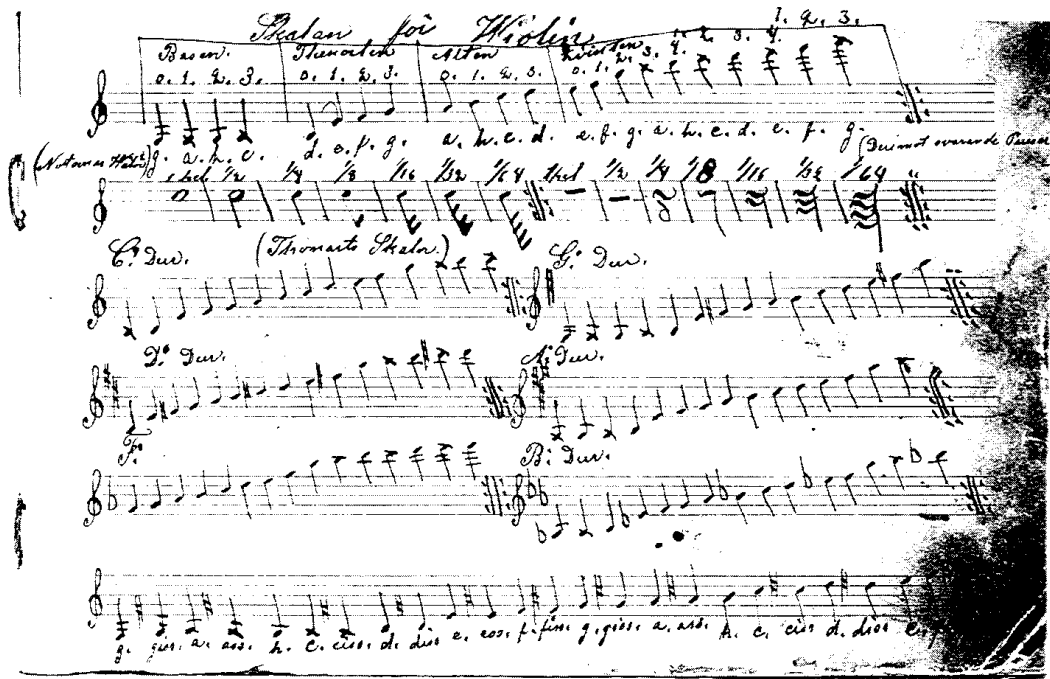 Skalan för Wiolin
1. 2. 3.
1. 2. 3. 4.
Basen. Thenorten Alten Kvinten
0. 1. 2. 3. 0. 1. 2. 3. 0. 1. 2. 3. 0. 1. 2. 3. 4.
g. a. h. c. d. e. f. g. a. h. c. d. e. f. g. a. h. c. d. e. f. g.
(Notornas (Deremot svarande Pauser
hel 1/2 1/4 1/8 1/16 1/32 1/64 hel 1/2 1/4 1/8 1/16 1/32 1/64
C: Dur. (Thonarts Skalor.) G: Dur.
D: Dur. A: Dur.
F: B: Dur.
g. giss. a. ass. h. c. ciss. d. diss e. ess. f. fiss. g. giss. a. ass. h. c. ciss d. diss